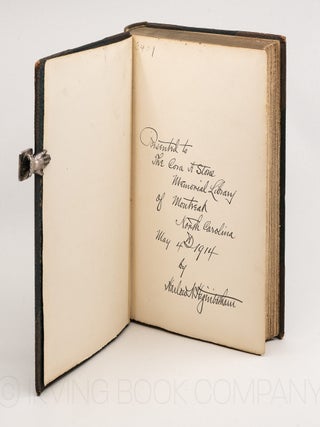 Presented to
The Cora A Stone
Memorial Library
of Montreat
North Carolina
May 4th 1914
by
Harlow N Higinbotham
© IRVING BOOK COMPANY